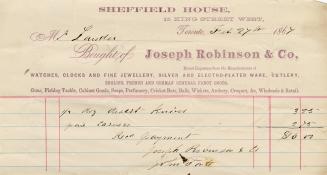 SHEFFIELD HOUSE,
15 KING STREET WEST,
Toronto, 27th 1867
Mr. Lawder
Bought of Joseph Robinson & Co,
Direct Importers from the Manufacturers of
WATCHES, CLOCKS AND FINE JEWELLERY, SILVER AND ELECTRO-PLATED WARE, CUTLERY,
ENGLISH, FRENCH AND GERMAN GENERAL FANCY GOODS.
Guns, Fishing Tackle, Cabinet Goods, Soaps, Perfumery, Cricket Bats, Balls, Wickets, Archery, Croquet, &c, Wholesale & Retail.
Knives
pair Carvers 2.75
Recd payment
Joseph Robinson & Co